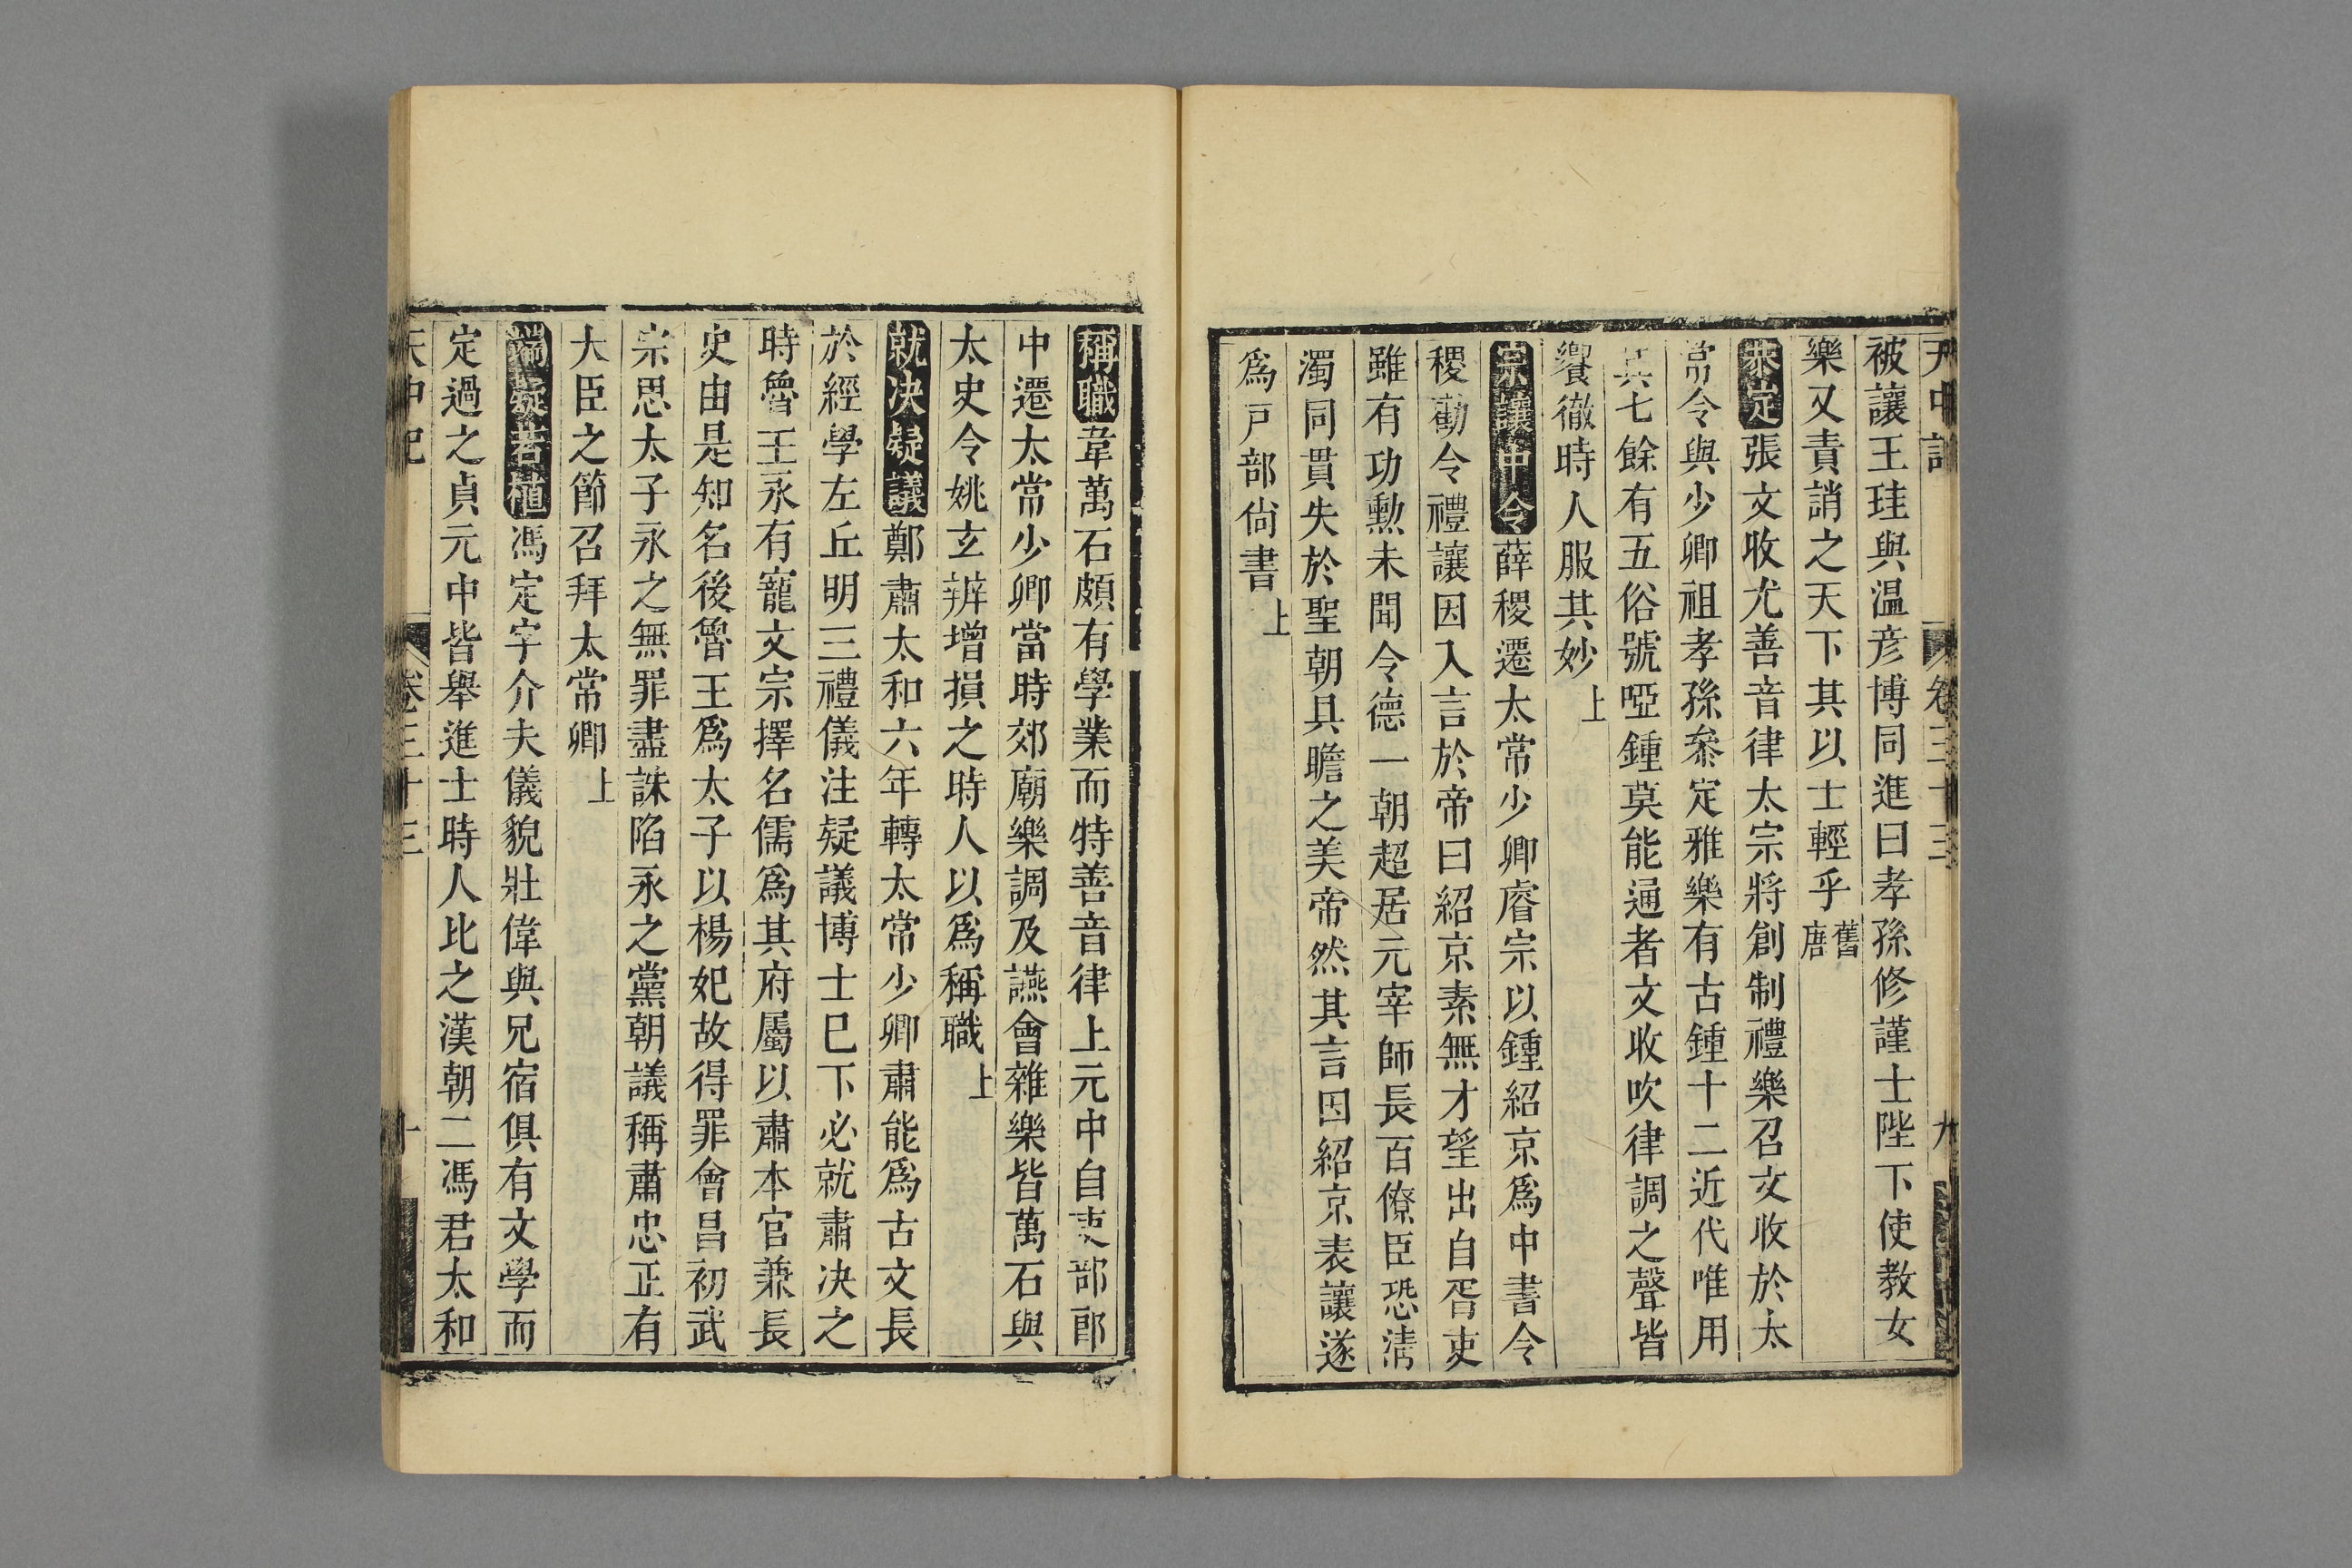 天中記 卷三十三 九
被讓王珪與温彦博同進曰孝孫修謹士陛下使教女
樂又責誚之天下其以士輕乎舊唐
叅定張文收尤善音律太宗將創制禮樂召文收於太
常令與少卿祖孝孫叅定雅樂有古鍾十二近代唯用
其七餘有五俗號啞鍾莫能通者文收吹律調之聲皆
響徹時人服其妙上
宗讓中令薛稷遷太常少卿睿宗以鍾紹京爲中書令
稷勸令禮讓因入言於帝曰紹京素無才望出自胥吏
雖有功勲未聞令德一朝超居元宰師長百僚臣恐淸
濁同貫失於聖朝具瞻之美帝然其言因紹京表讓遂
爲戸部尙書上
稱職韋萬石頗有學業而特善音律上元中自吏部郎
中遷太常少卿當時郊廟樂調及讌會雜樂皆萬石與
太史令姚玄辨增損之時人以爲稱職上
就决疑議鄭肅太和六年轉太常少卿肅能爲古文長
於經學左丘明三禮儀注疑議博士巳下必就肅决之
時魯王永有寵文宗擇名儒爲其府屬以肅本官兼長
史由是知名後魯王爲太子以楊妃故得罪會昌初武
宗思太子永之無罪盡誅陷永之黨朝議稱肅忠正有
大臣之節召拜太常卿上
端凝若植馮定字介夫儀貌壯偉與兄宿俱有文學而
定過之貞元中皆舉進士時人比之漢朝二馮君太和
天中記 卷三十三 十